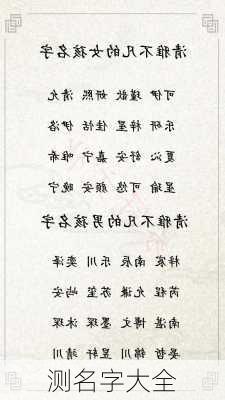 清雅不凡的女孩名字
可伊 瑾歆 妍熙 清允
乐妍 梓星 佳恬 伊洛
夏沁 舒安 嘉宁 唯希
星瑜 可悠 颜安 晚宁
清雅不凡的男孩名字
梓宸 南辰 乐川 奕泽
芮程 允谦 苏笙 屿安
南湛 博文 墨琛 沐琛
晏哲 锦川 昱轩 靖川
测名字大全